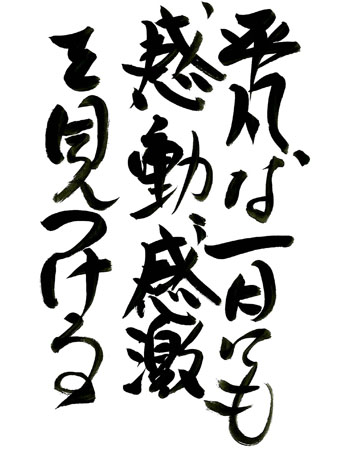 平凡な一日にも
感動感激
を見つける